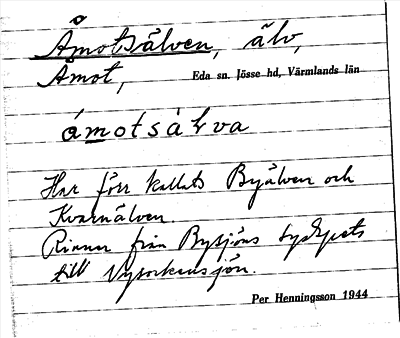 Åmotsälven, älv,
Åmot,
Eda sn. Jösse hd, Värmlands län
åmotsäLva
Har förr kallats Byälven och
Kvarnälven.
Rinner från Bysjöns sydspets
till
Per Henningsson 1944